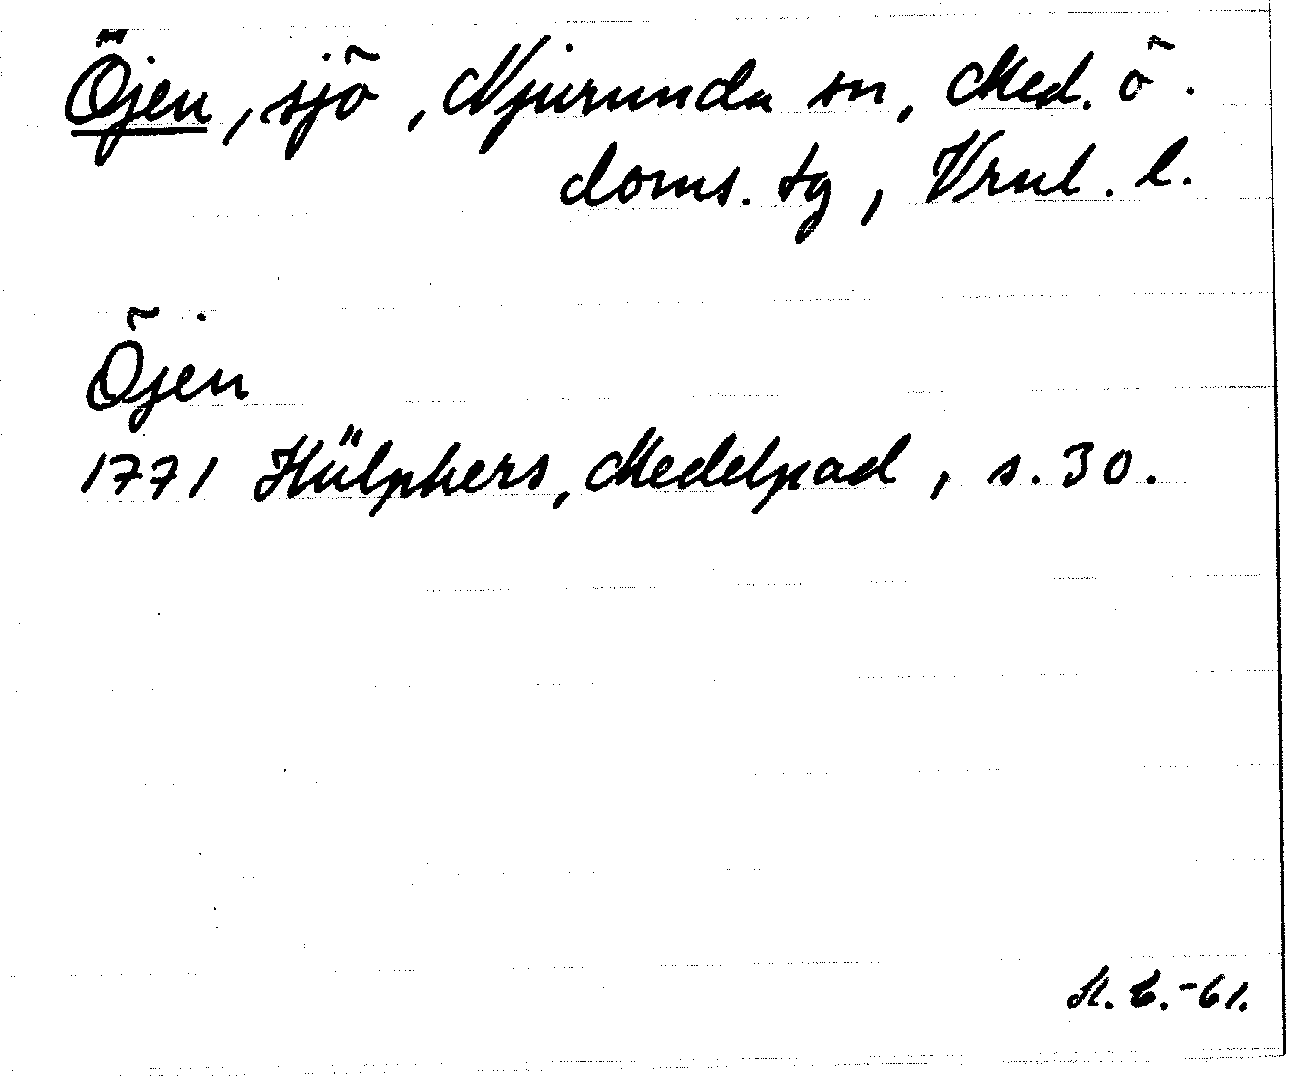 Öjen, sjö, Njurunda sn, Med. ö.
doms. tg, Vrnl. l.
Öjen
1771 Hülphers, Medelpad, s. 30.
-61.